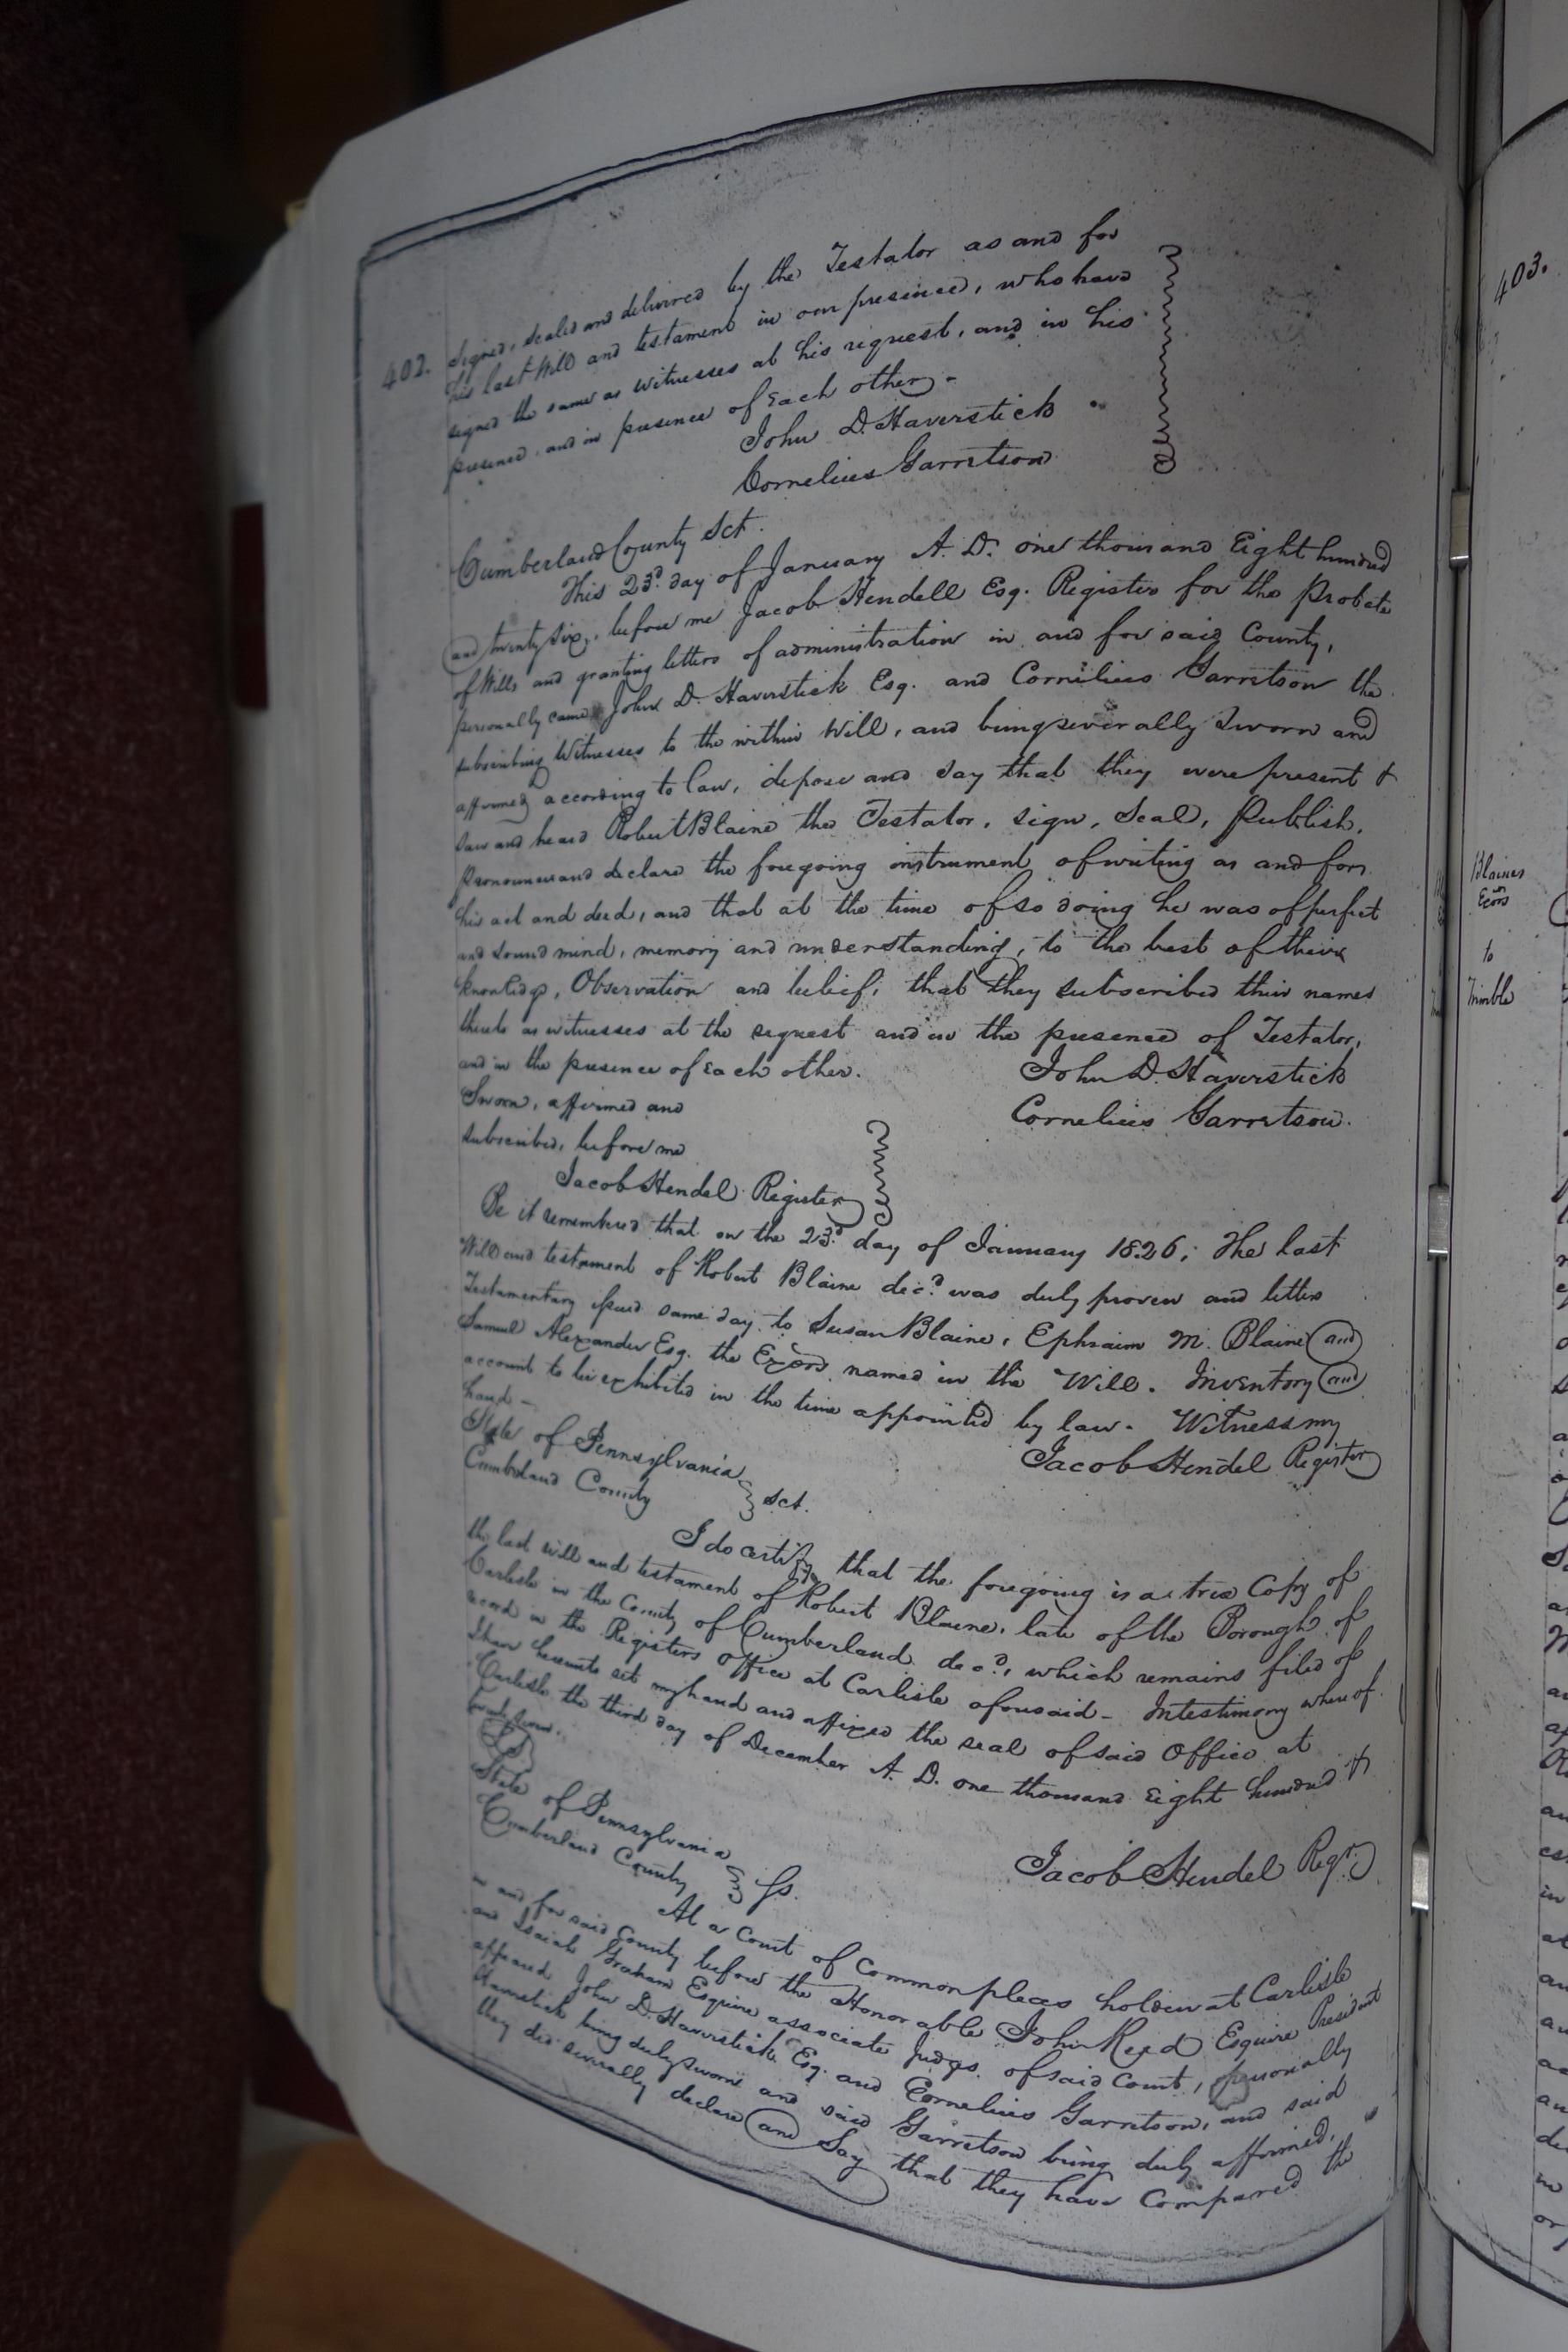 402.
Signed, sealed and delivered by the Testator as and for
his last Will and testament in our presence, who have
signed the same as Witnesses at his request, and in his
presence, and in presence of Each other. -
John D. Haverstick
Cornelius Garretson
Cumberland County Sct.
This 23d. day of January A. D. one thousand Eight hundred
and twenty six, before me Jacob Hendell Esq. Register for the Probate
of Wills and granting letters of administration in and for said County,
personally came John D. Haverstick Esq. and Cornelius Garretson the
subscribing Witnesses to the within Will, and being severally Sworn and
affirmed according to law, depose and say that they were present &
saw and heard Robert Blaine the Testator, sign, Seal, Publish,
Pronounce and declare the foregoing instrument of writing as and for
his act and deed, and that at the time of so doing he was of perfect
and sound mind, memory and understanding, to the best of their
knowledge, Observation and belief, that they subscribed their names
thereto as witnesses at the request and in the presence of Testator,
and in the presence of Each other.
John D. Haverstick
Sworn, affirmed and
Cornelius Garretson.
subscribed, before me
Jacob Hendel Register
Be it remembered that on the 23d. day of January 1826, The last
Will and testament of Robert Blaine decd. was duly proven and letters
Testamentary issued same day to Susan Blaine, Ephraim M. Blaine and
Samuel Alexander Esq. the Exors. named in the Will. Inventory and
account to be exhibited in the time appointed by law. Witness my
hand -
Jacob Hendel Register
State of Pennsylvania
Cumberland County
Sct.
I do certify that the foregoing is a true Copy of
the last will and testament of Robert Blaine, late of the Borough of
Carlisle in the County of Cumberland decd., which remains filed of
record in the Registers office at Carlisle aforesaid - Intestimony whereof
I have hereunto set my hand and affixed the seal of said Office at
Carlisle the third day of December A. D. one thousand Eight hundred &
Jacob Hendel Regr.
State of Pennsylvania
Cumberland County
ss.
At a Court of Common pleas holden at Carlisle
in and for said County before the Honorable John Reed Esquire President
and Isaiah Graham Esquire associate Judges of said Court, personally
appeared John D. Haverstick Esq. and Cornelius Garretson, and said
Haverstick being duly sworn and said Garretson being duly affirmed,
they did severally declare and Say that they have Compared the
403.
Blaines
Exors
to
Trimble